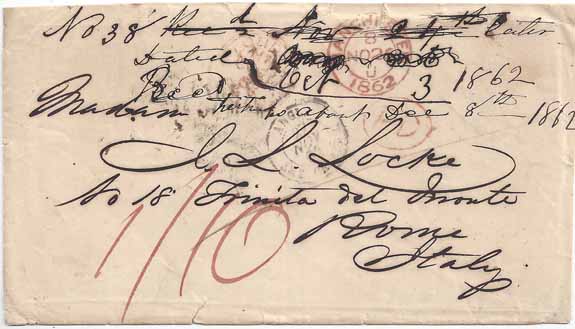 No 38 Recd Nov 24th
Dated
Oct 3 1862
Recd
Madam perhaps about Dec 8th 1862
MANCHESTER
B
NO 26
1862
J. L. Locke
No 18 Trinita del Monte
Rome
Italy
1/10